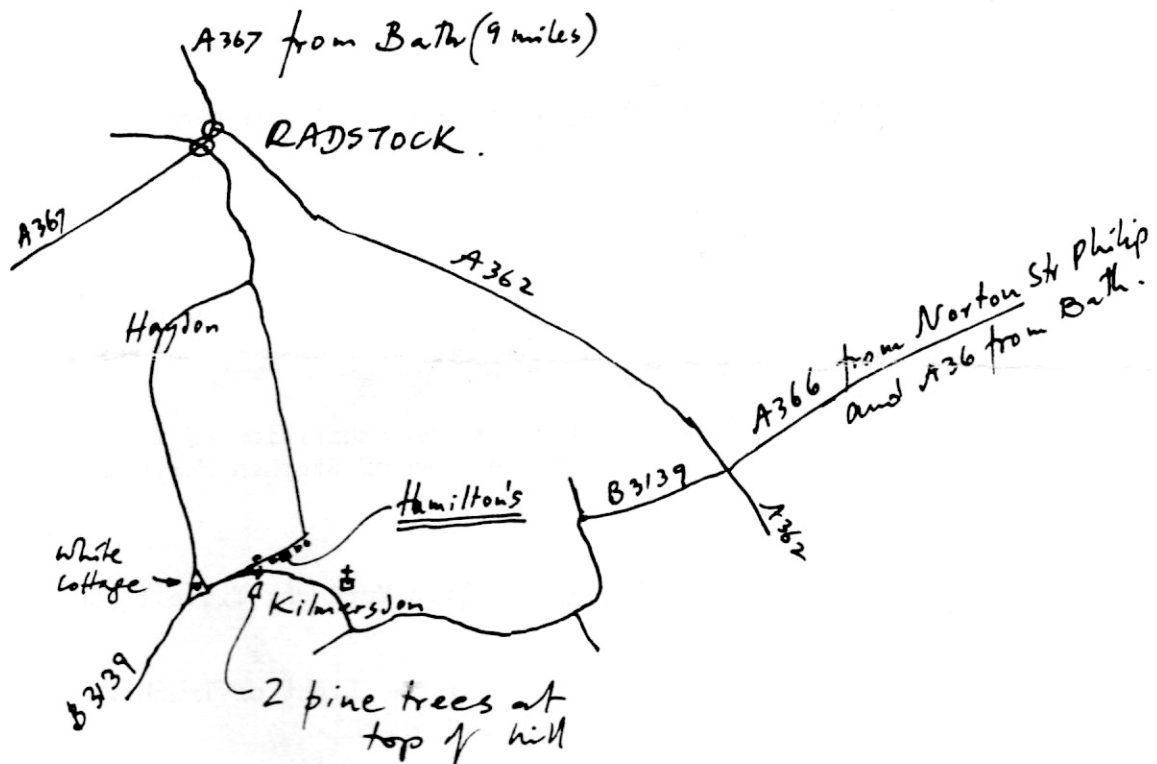 A367 from Bath (9 miles)
RADSTOCK.
A367
A362
Haydon
A366 from Norton St Philip
and A36 from Bath.
B3139
A362
Hamilton's
White
Cottage
Kilmersdon
B3139
2 pine trees at
top of hill